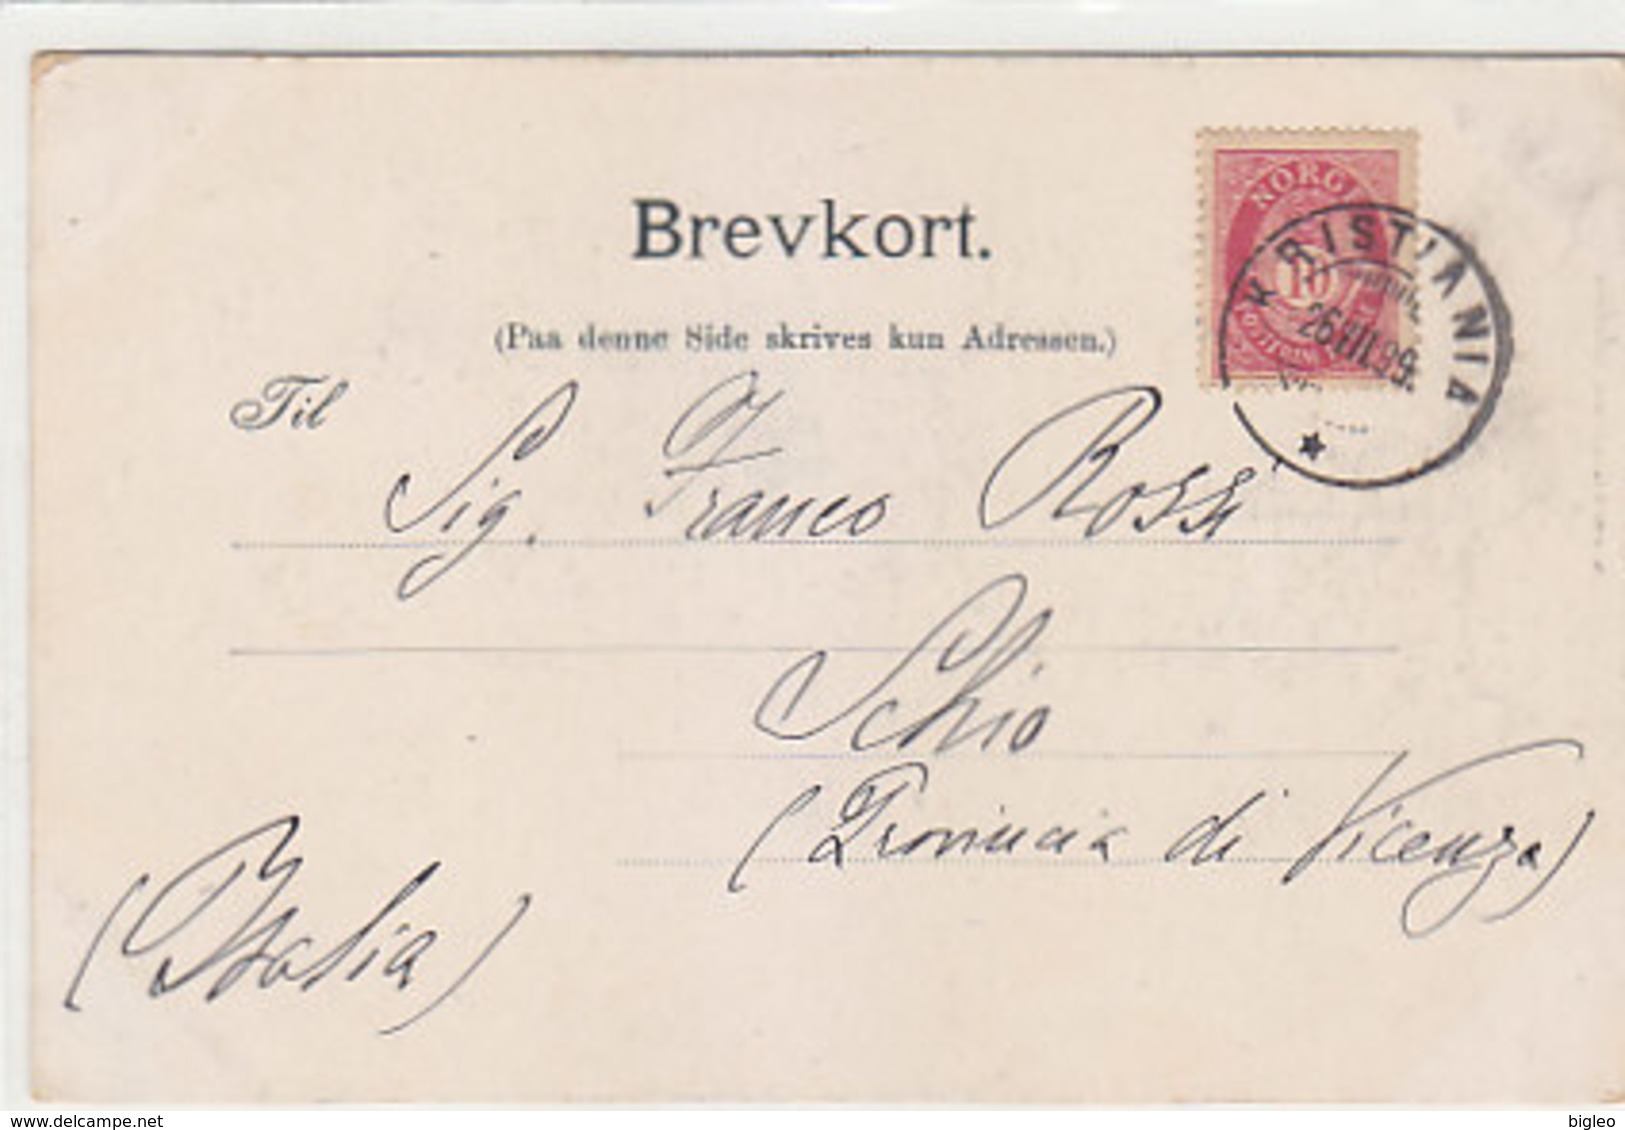 Brevkort.
(Paa denne Side skrives kun Adressen.)
NORGE
10
KRISTIANIA
26 VII 99
Til
Sig. Franco Rossi
Schio
(Provincia di Vicenza)
(Italia)
www.delcampe.net
bigleo